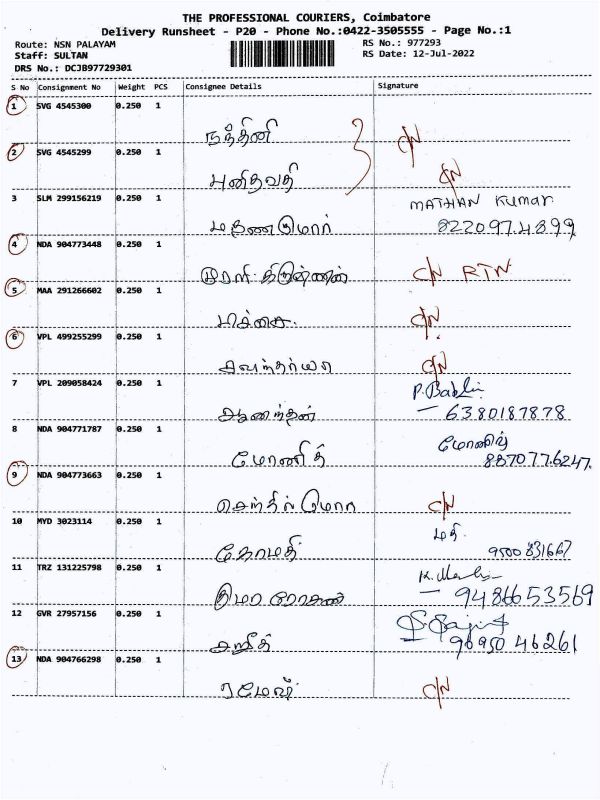 THE PROFESSIONAL COURIERS, Coimbatore
Delivery Runsheet - P20 - Phone No.:0422-3505555 - Page No.:1
Route: NSN PALAYAM
RS No.: 977293
Staff: SULTAN
RS Date: 12-Jul-2022
DRS No.: DCJB97729301
S No Consignment No Weight PCS Consignee Details Signature
1 SVG 4545300 0.250 1
நந்தினி C/N
2 SVG 4545299 0.250 1
புனிதவதி C/N
3 SLM 299156219 0.250 1 MATHAN Kumar
822097.4899
4 NDA 904773448 0.250 1
முரளி C/N RTN
5 MAA 291266602 0.250 1
பச்சை. C/N
6 VPL 499255299 0.250 1
C/N
7 VPL 209058424 0.250 1 P. Bablu
ஆனந்தன் – 6380187878
8 NDA 904771787 0.250 1
மோனித் 887077.6247.
9 NDA 904773663 0.250 1
செந்தில் C/N
10 MYD 3023114 0.250 1 மதி.
கோமதி 9500831667
11 TRZ 131225798 0.250 1
உமா – 9486653569
12 GVR 27957156 0.250 1
அஜித் 96950 46261
13 NDA 904766298 0.250 1
ரமேஷ் C/N